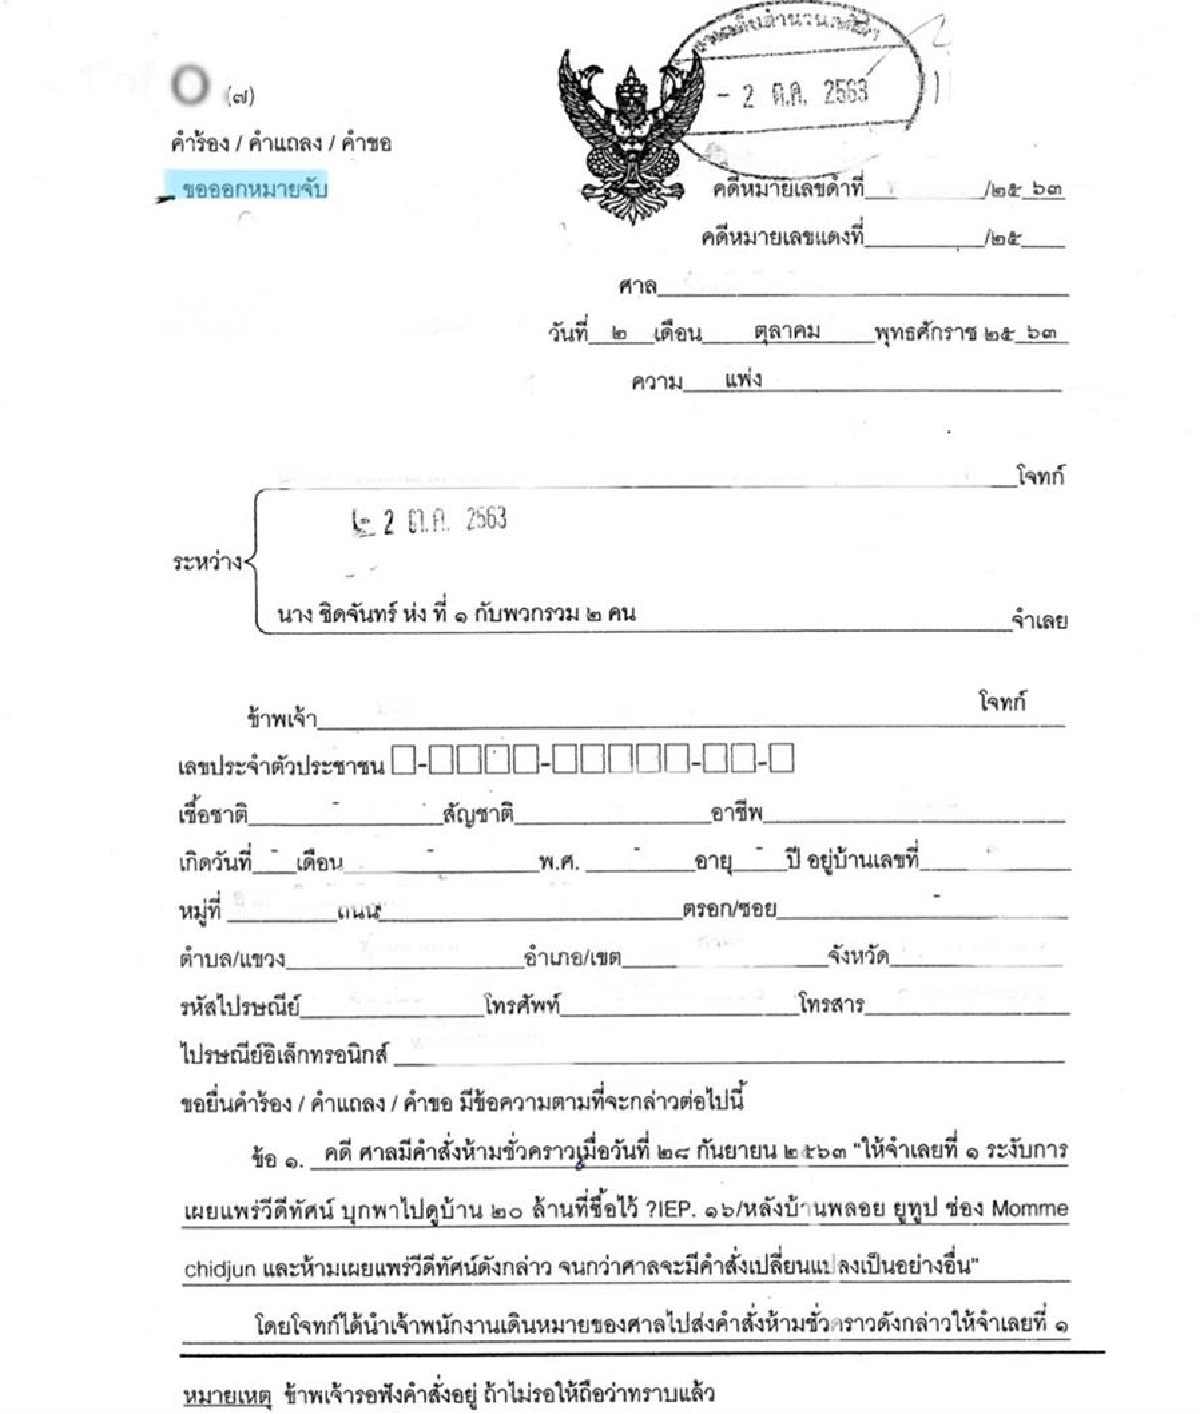 (๗)
- 2 ต.ค. 2563
คำร้อง / คำแถลง / คำขอ
ขอออกหมายจับ
คดีหมายเลขดำที่ /๒๕ ๖๓
คดีหมายเลขแดงที่ /๒๕
ศาล
วันที่ ๒ เดือน ตุลาคม พุทธศักราช ๒๕ ๖๓
ความ แพ่ง
โจทก์
2 ต.ค. 2563
ระหว่าง
นาง ชิดจันทร์ ห่ง ที่ ๑ กับพวกรวม ๒ คน จำเลย
โจทก์
ข้าพเจ้า
เลขประจำตัวประชาชน
เชื้อชาติ สัญชาติ อาชีพ
เกิดวันที่ - เดือน - พ.ศ. - อายุ - ปี อยู่บ้านเลขที่
หมู่ที่ ถนน ตรอก/ซอย -
ตำบล/แขวง อำเภอ/เขต จังหวัด
รหัสไปรษณีย์ โทรศัพท์ โทรสาร
ไปรษณีย์อิเล็กทรอนิกส์
ขอยื่นคำร้อง / คำแถลง / คำขอ มีข้อความตามที่จะกล่าวต่อไปนี้
ข้อ ๑. คดี ศาลมีคำสั่งห้ามชั่วคราวเมื่อวันที่ ๒๘ กันยายน ๒๕๖๓ "ให้จำเลยที่ ๑ ระงับการ
เผยแพร่วีดีทัศน์ บุกพาไปดูบ้าน ๒๐ ล้านที่ซื้อไว้ ?IEP. ๑๖/หลังบ้านพลอย ยูทูป ช่อง Momme
chidjun และห้ามเผยแพร่วีดีทัศน์ดังกล่าว จนกว่าศาลจะมีคำสั่งเปลี่ยนแปลงเป็นอย่างอื่น"
โดยโจทก์ได้นำเจ้าพนักงานเดินหมายของศาลไปส่งคำสั่งห้ามชั่วคราวดังกล่าวให้จำเลยที่ ๑
หมายเหตุ ข้าพเจ้ารอฟังคำสั่งอยู่ ถ้าไม่รอให้ถือว่าทราบแล้ว